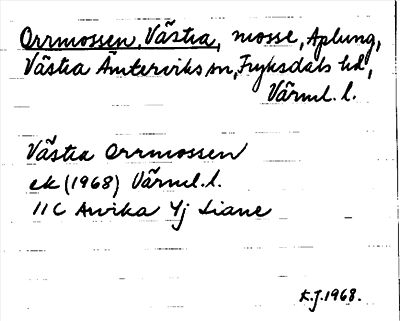 Orrmossen, Västra, mosse, Aplung,
Västra Ämterviks sn, Fryksdals hd,
Värml. l.
Västra Orrmossen
ek (1968) Värml. l.
11C Arvika 4j Liane
K.J. 1968.